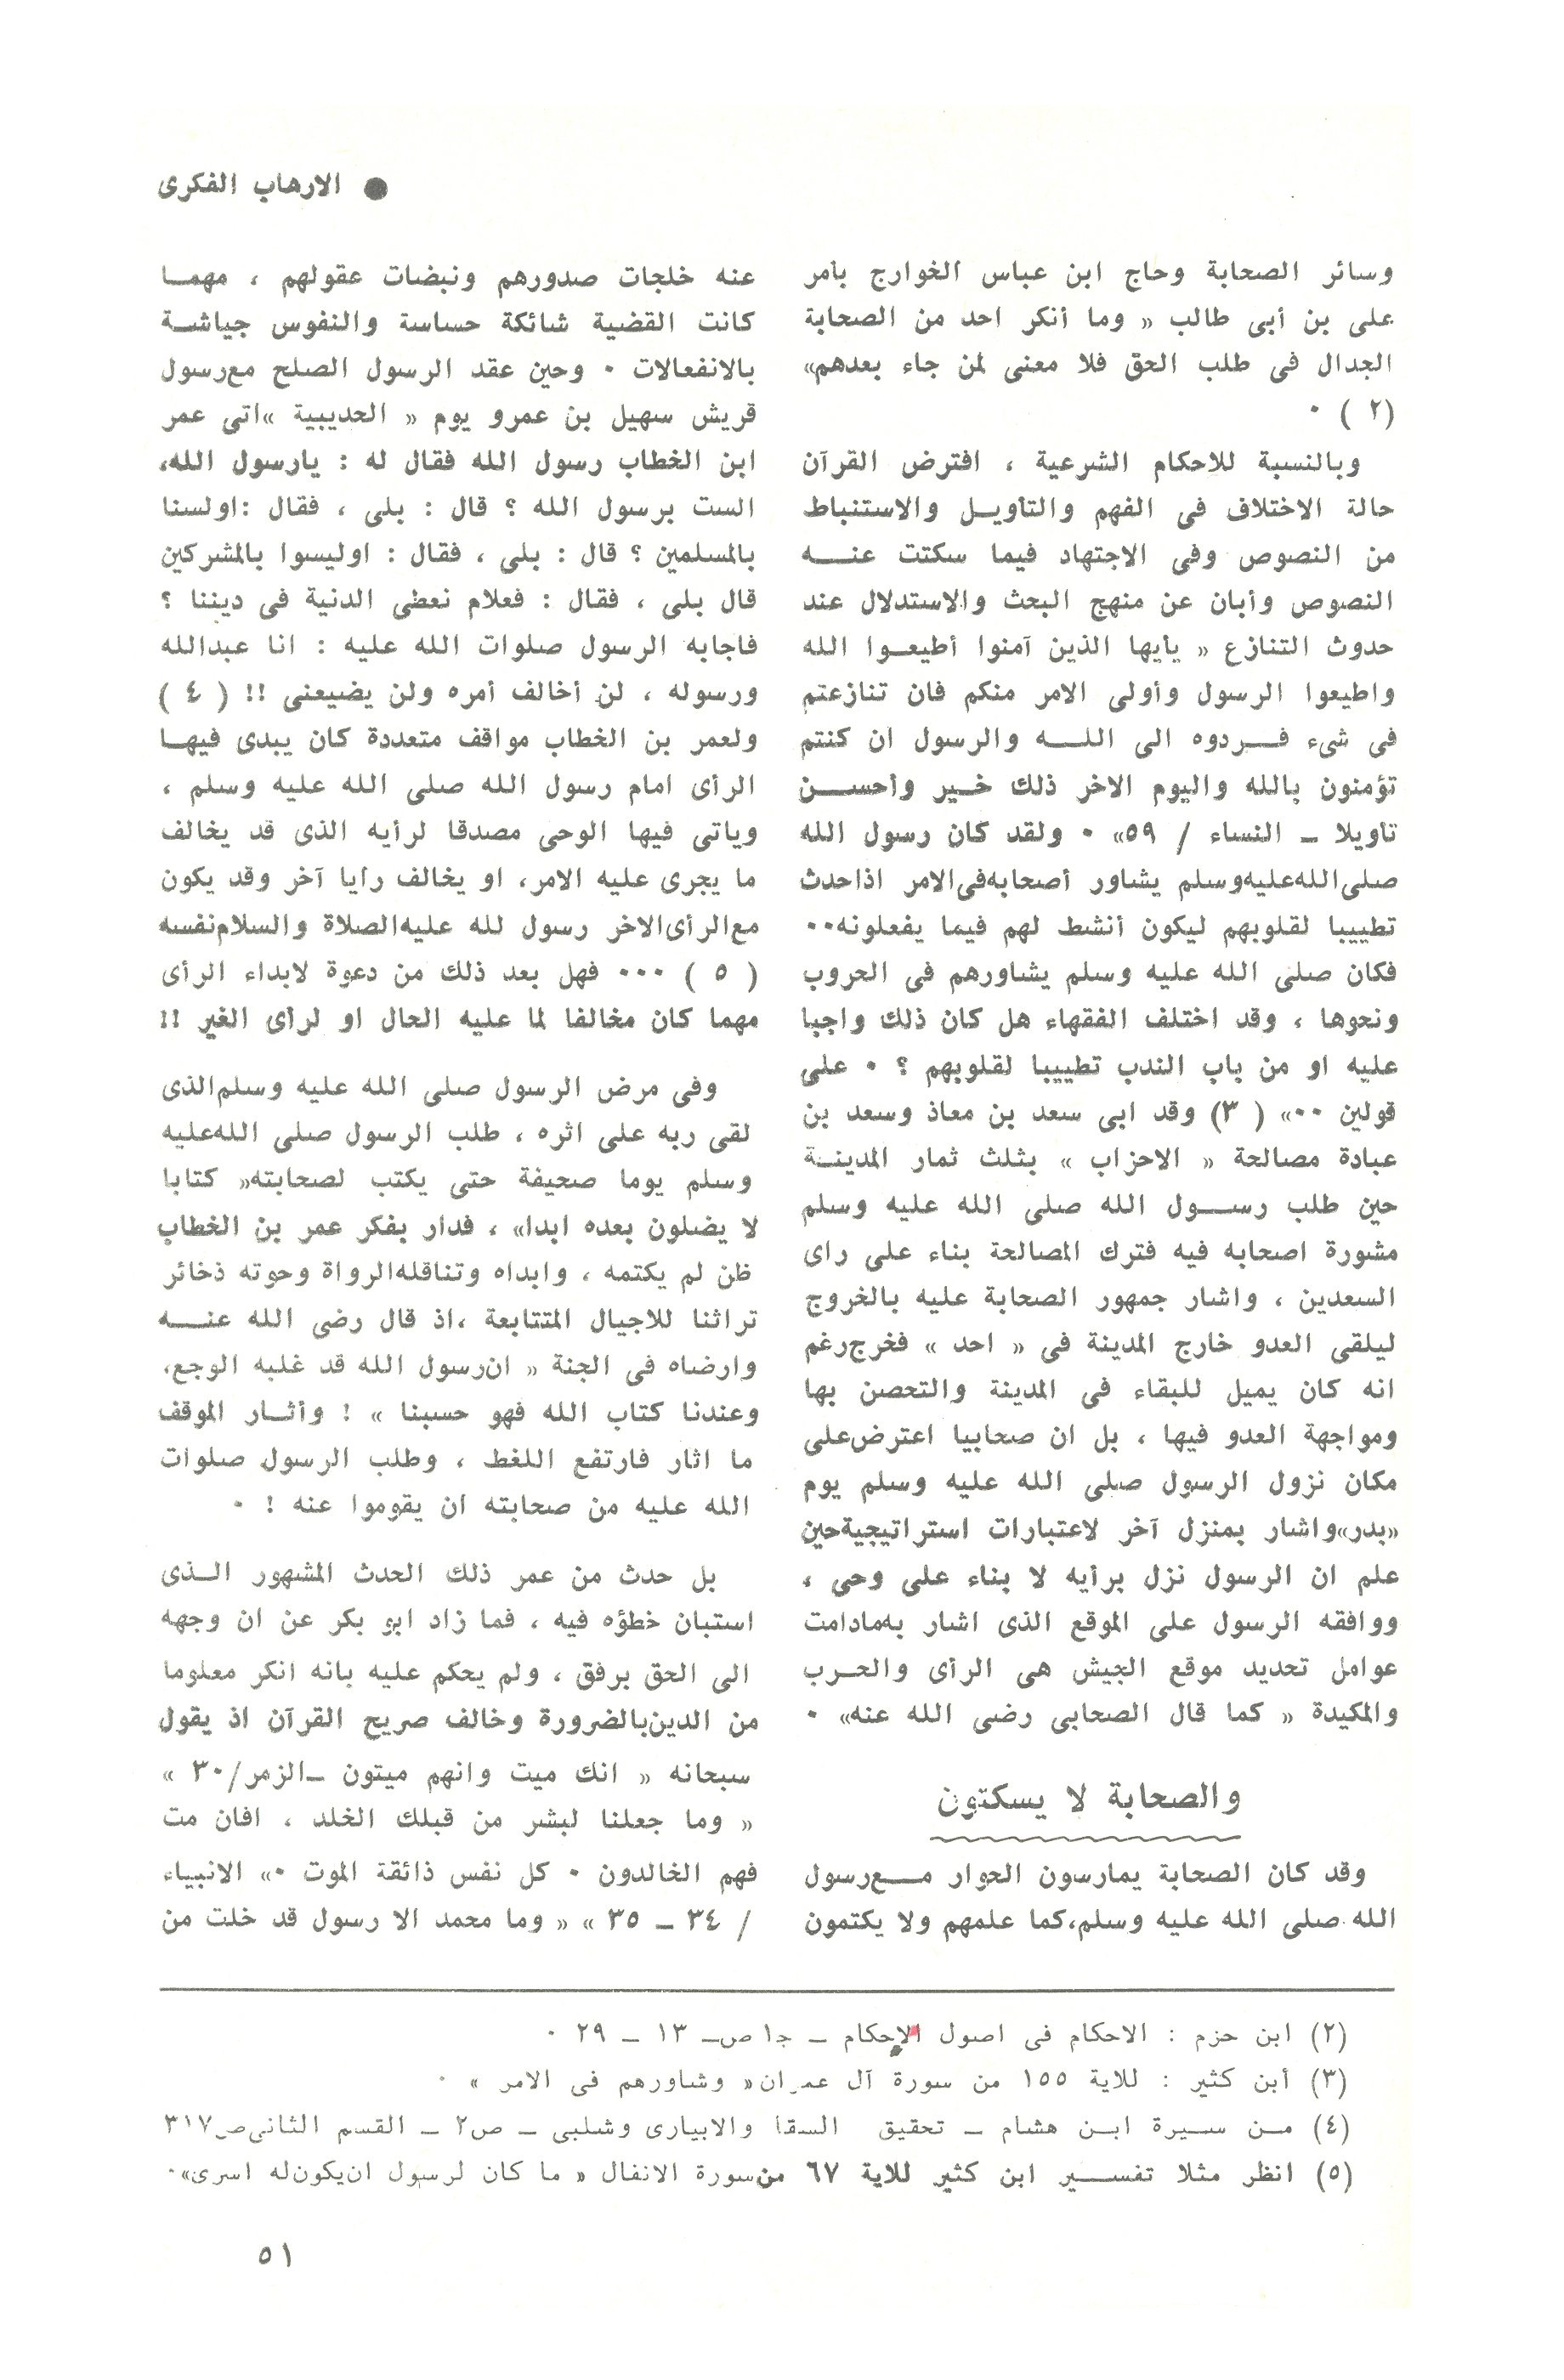 ● الارهاب الفكرى
وسائر الصحابة وحاج ابن عباس الخوارج بأمر
على بن أبى طالب « وما أنكر احد من الصحابة
الجدال فى طلب الحق فلا معنى لمن جاء بعدهم»
(٢ ) ٠
وبالنسبة للاحكام الشرعية ، افترض القرآن
حالة الاختلاف فى الفهم والتأويل والاستنباط
من النصوص وفى الاجتهاد فيما سكتت عنه
النصوص وأبان عن منهج البحث والاستدلال عند
حدوث التنازع « يأيها الذين آمنوا أطيعوا الله
واطيعوا الرسول وأولى الامر منكم فان تنازعتم
فى شىء فردوه الى الله والرسول ان كنتم
تؤمنون بالله واليوم الاخر ذلك خير وأحسن
تأويلا ـ النساء / ٥٩» ٠ ولقد كان رسول الله
صلى الله عليه وسلم يشاور أصحابه فى الامر اذا حدث
تطييبا لقلوبهم ليكون أنشط لهم فيما يفعلونه ٠٠
فكان صلى الله عليه وسلم يشاورهم فى الحروب
ونحوها ، وقد اختلف الفقهاء هل كان ذلك واجبا
عليه او من باب الندب تطييبا لقلوبهم ؟ ٠ على
قولين ٠٠» ( ٣) وقد ابى سعد بن معاذ وسعد بن
عبادة مصالحة « الاحزاب » بثلث ثمار المدينة
حين طلب رسول الله صلى الله عليه وسلم
مشورة اصحابه فيه فترك المصالحة بناء على راى
السعدين ، واشار جمهور الصحابة عليه بالخروج
ليلقى العدو خارج المدينة فى « احد » فخرج رغم
انه كان يميل للبقاء فى المدينة والتحصن بها
ومواجهة العدو فيها ، بل ان صحابيا اعترض على
مكان نزول الرسول صلى الله عليه وسلم يوم
«بدر» واشار بمنزل آخر لاعتبارات استراتيجية حين
علم ان الرسول نزل برأيه لا بناء على وحى ،
ووافقه الرسول على الموقع الذى اشار به مادامت
عوامل تحديد موقع الجيش هى الرأى والحرب
والمكيدة « كما قال الصحابى رضى الله عنه» ٠
والصحابة لا يسكتون
وقد كان الصحابة يمارسون الحوار مع رسول
الله صلى الله عليه وسلم، كما علمهم ولا يكتمون
عنه خلجات صدورهم ونبضات عقولهم ، مهما
كانت القضية شائكة حساسة والنفوس جياشة
بالانفعالات ٠ وحين عقد الرسول الصلح مع رسول
قريش سهيل بن عمرو يوم « الحديبية »اتى عمر
ابن الخطاب رسول الله فقال له : يارسول الله،
الست برسول الله ؟ قال : بلى ، فقال :اولسنا
بالمسلمين ؟ قال : بلى ، فقال : اوليسوا بالمشركين
قال بلى ، فقال : فعلام نعطى الدنية فى ديننا ؟
فاجابه الرسول صلوات الله عليه : انا عبدالله
ورسوله ، لن أخالف أمره ولن يضيعنى !! ( ٤ )
ولعمر بن الخطاب مواقف متعددة كان يبدى فيها
الرأى امام رسول الله صلى الله عليه وسلم ،
وياتى فيها الوحى مصدقا لرأيه الذى قد يخالف
ما يجرى عليه الامر، او يخالف رأيا آخر وقد يكون
مع الرأى الاخر رسول لله عليه الصلاة والسلام نفسه
( ٥ ) ٠٠٠ فهل بعد ذلك من دعوة لابداء الرأى
مهما كان مخالفا لما عليه الحال او لرأى الغير !!
وفى مرض الرسول صلى الله عليه وسلم الذى
لقى ربه على اثره ، طلب الرسول صلى الله عليه
وسلم يوما صحيفة حتى يكتب لصحابته« كتابا
لا يضلون بعده ابدا» ، فدار بفكر عمر بن الخطاب
ظن لم يكتمه ، وابداه وتناقله الرواة وحوته ذخائر
تراثنا للاجيال المتتابعة ،اذ قال رضى الله عنه
وارضاه فى الجنة « ان رسول الله قد غلبه الوجع،
وعندنا كتاب الله فهو حسبنا » ! وأثار الموقف
ما اثار فارتفع اللغط ، وطلب الرسول صلوات
الله عليه من صحابته ان يقوموا عنه ! ٠
بل حدث من عمر ذلك الحدث المشهور الذى
استبان خطؤه فيه ، فما زاد ابو بكر عن ان وجهه
الى الحق برفق ، ولم يحكم عليه بانه انكر معلوما
من الدين بالضرورة وخالف صريح القرآن اذ يقول
سبحانه « انك ميت وانهم ميتون ـ الزمر/ ٣٠ »
« وما جعلنا لبشر من قبلك الخلد ، افان مت
فهم الخالدون ٠ كل نفس ذائقة الموت ٠» الانبياء
/ ٣٤ ـ ٣٥ » « وما محمد الا رسول قد خلت من
(٢) ابن حزم : الاحكام فى اصول الاحكام ـ جـ١ ص ـ ١٣ ـ ٢٩ ٠
(٣) أبن كثير : للاية ١٥٥ من سورة آل عمران« وشاورهم فى الامر » ٠
(٤) من سيرة ابن هشام ـ تحقيق السقا والابيارى وشلبى ـ ص٢ ـ القسم الثانى ص ٣١٧
(٥) انظر مثلا تفسير ابن كثير للاية ٦٧ من سورة الانفال « ما كان لرسول ان يكون له اسرى»٠
٥١